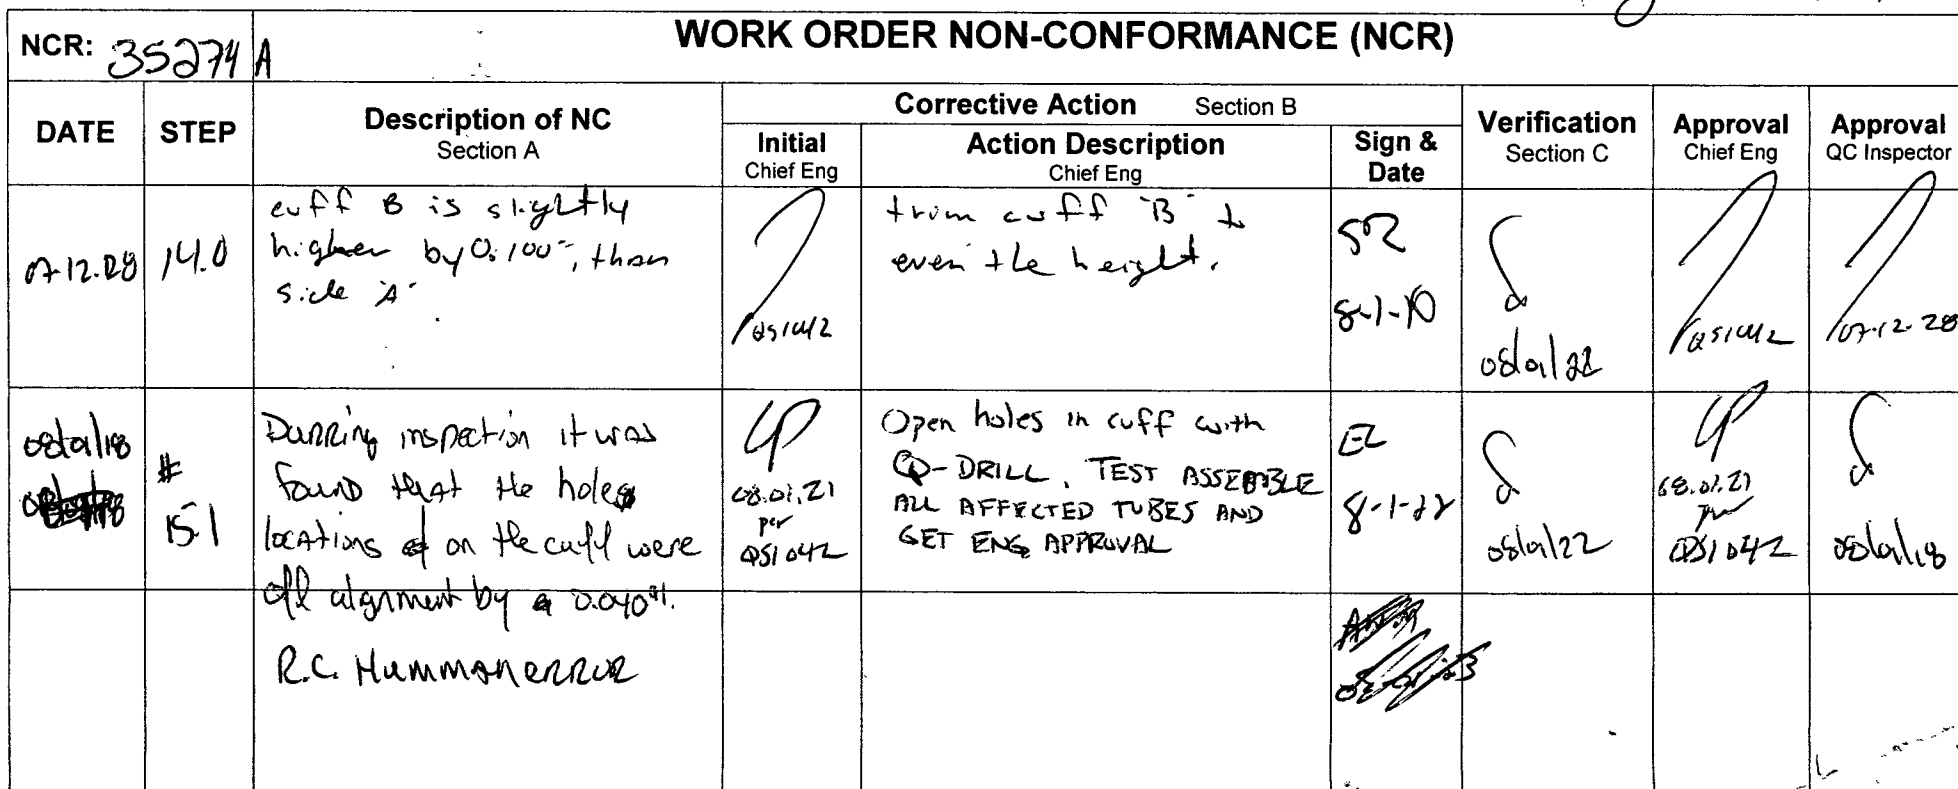 NCR: 35274 A
WORK ORDER NON-CONFORMANCE (NCR)
DATE
STEP
Description of NC
Section A
Corrective Action Section B
Initial
Chief Eng
Action Description
Chief Eng
Sign &
Date
Verification
Section C
Approval
Chief Eng
Approval
QC Inspector
07.12.28
14.0
cuff B is slightly
higher by 0.100", than
side "A"
QSI042
trim cuff "B" to
even the height.
SR
8-1-10
08/01/22
QSI042
07-12-28
08/01/18
#
15.1
Durring inspection it was
found that the holes
locations on the cuff were
off alignment by 0.040".
R.C. Humman error
08.01.21
per
QSI042
Open holes in cuff with
Q-DRILL, TEST ASSEMBLE
ALL AFFECTED TUBES AND
GET ENG APPROVAL
EL
8-1-22
08/01/22
08.01.21
QSI042
08/01/18